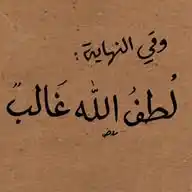 وفي النهاية :
لُطفُ الله غَالبٌ